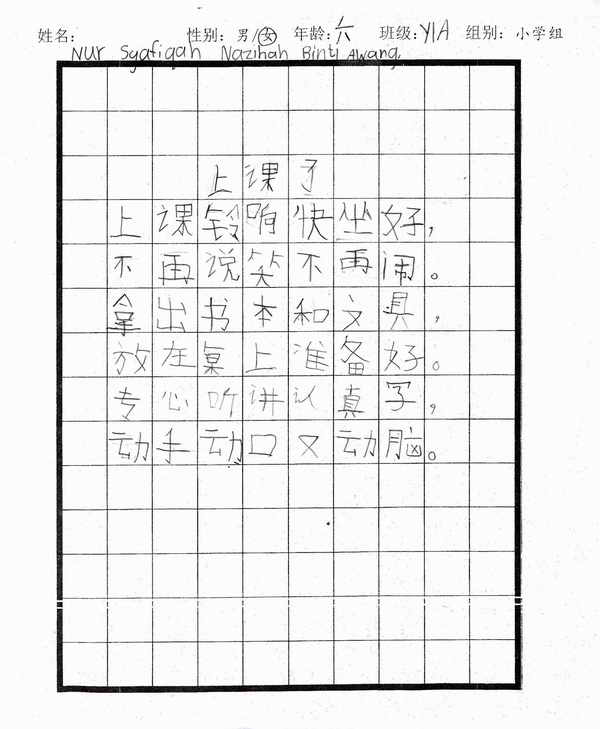 姓名: 性别: 男/女 年龄: 六 班级: Y1A 组别: 小学组
Nur Syafiqah Nazihah Binti Awang
上课了
上课铃响快坐好，
不再说笑不再闹。
拿出书本和文具，
放在桌上准备好。
专心听讲认真写，
动手动口又动脑。